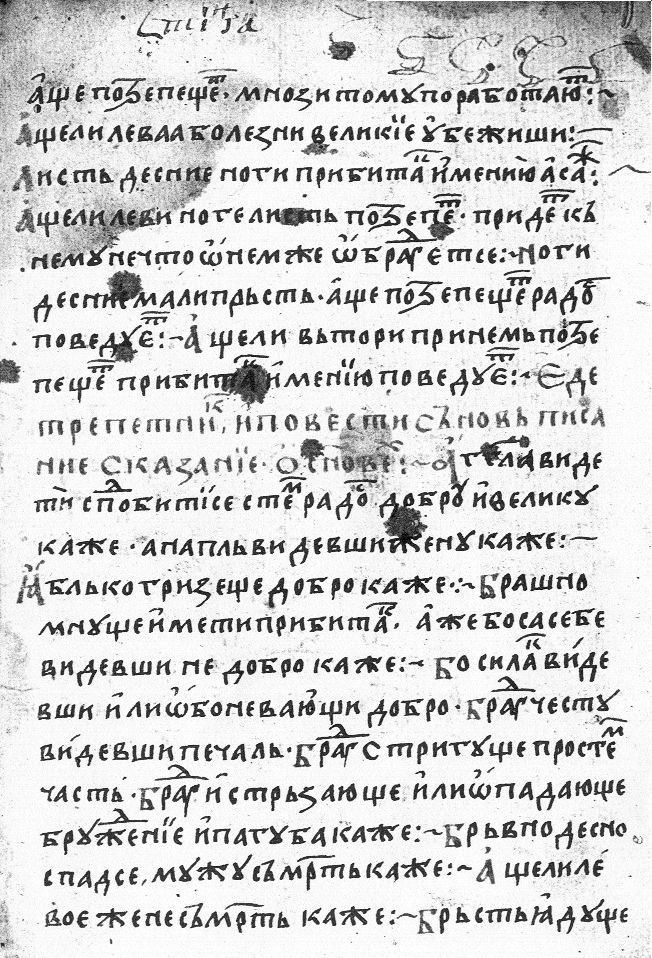 а҆ще поꙁепещеⷮ · мноꙁи томꙋ поработаюⷮ :~
А҆щели лева а болеꙁни великїе ꙋ҆бежиши :~
Листь десние ноги прибитаⷦ҇ и҆мению а҆саⷤ :
А҆щели леви ноге листь поꙁепеⷮ · придеⷮ кь
немꙋ нечто ѡ҆ нем же ѡ҆браⷣгетсе :~ Ноги
десние мали прьсть · а҆ще поꙁепещеⷮ радоⷭ҇
поведꙋеⷮ :~ А҆щели вьтори при немь поꙁе
пещеⷮ прибитаⷦ҇ и҆менїю поведꙋеⷮ :~ Сде
трепетниⷦ҇, и҆ повести сьновь писа
ние сказанїе · о҆ сновеⷯ :~ А҆гг҃ела виде
ти сподⷣбитисе стеⷨ радоⷭ҇ · доброꙋ и҆ великꙋ
каже · а напль видевши женꙋ каже :~
Ꙗ҆блько гриꙁеще добро каже :~ Брашно
мнꙋще и҆мети прибитаⷦ҇, а҆же боса себе
видевши не добро каже :~ Бо силаⷦ҇ виде
вши и҆ли ѡ҆боневающи добро · Браⷣгчестꙋ
видевши печаль · Браⷣг стригꙋще простеⷨ
часть · Браⷣг и҆стрьзающе и҆ли ѡ҆падающе
брꙋⷣженїе и҆ пагꙋба каже :~ Брьвно десно
спадсе, мꙋжꙋ сьмр҃ть каже :~ А҆щели ле
вое жене сьмр҃ть каже :~ Брьсть ꙗ҆дꙋще